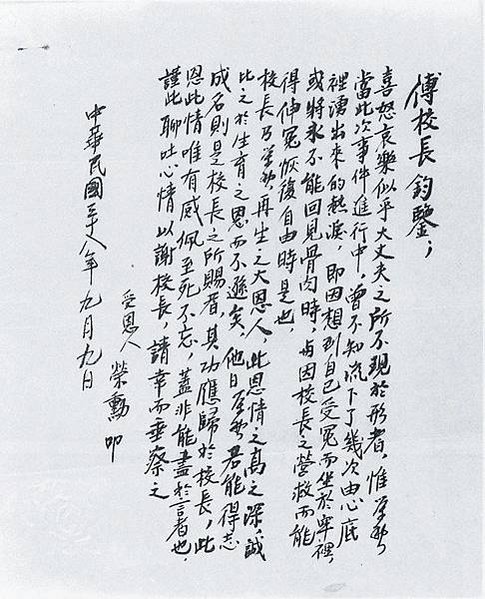 傅校長 鈞鑒；
喜怒哀樂似乎大丈夫之所不現於形者，惟
當此次事件進行中，曾不知流下了幾次由心底
裡湧出來的熱淚，即因想到自己受冤而坐於牢裡，
或將永不能回見骨肉時，与因校長之營救而能
得伸冤恢復自由時是也，
校長乃再生之大恩人，此恩情之高之深，誠
比之於生育之恩而不遜矣，他日若能得志
成名則是校長之所賜者，其功應歸於校長，此
恩此情唯有感佩至死不忘，蓋非能盡於言者也，
謹此聊吐心情以謝校長，請幸而垂察之
受恩人 榮勳 叩
中華民國三十八年九月九日